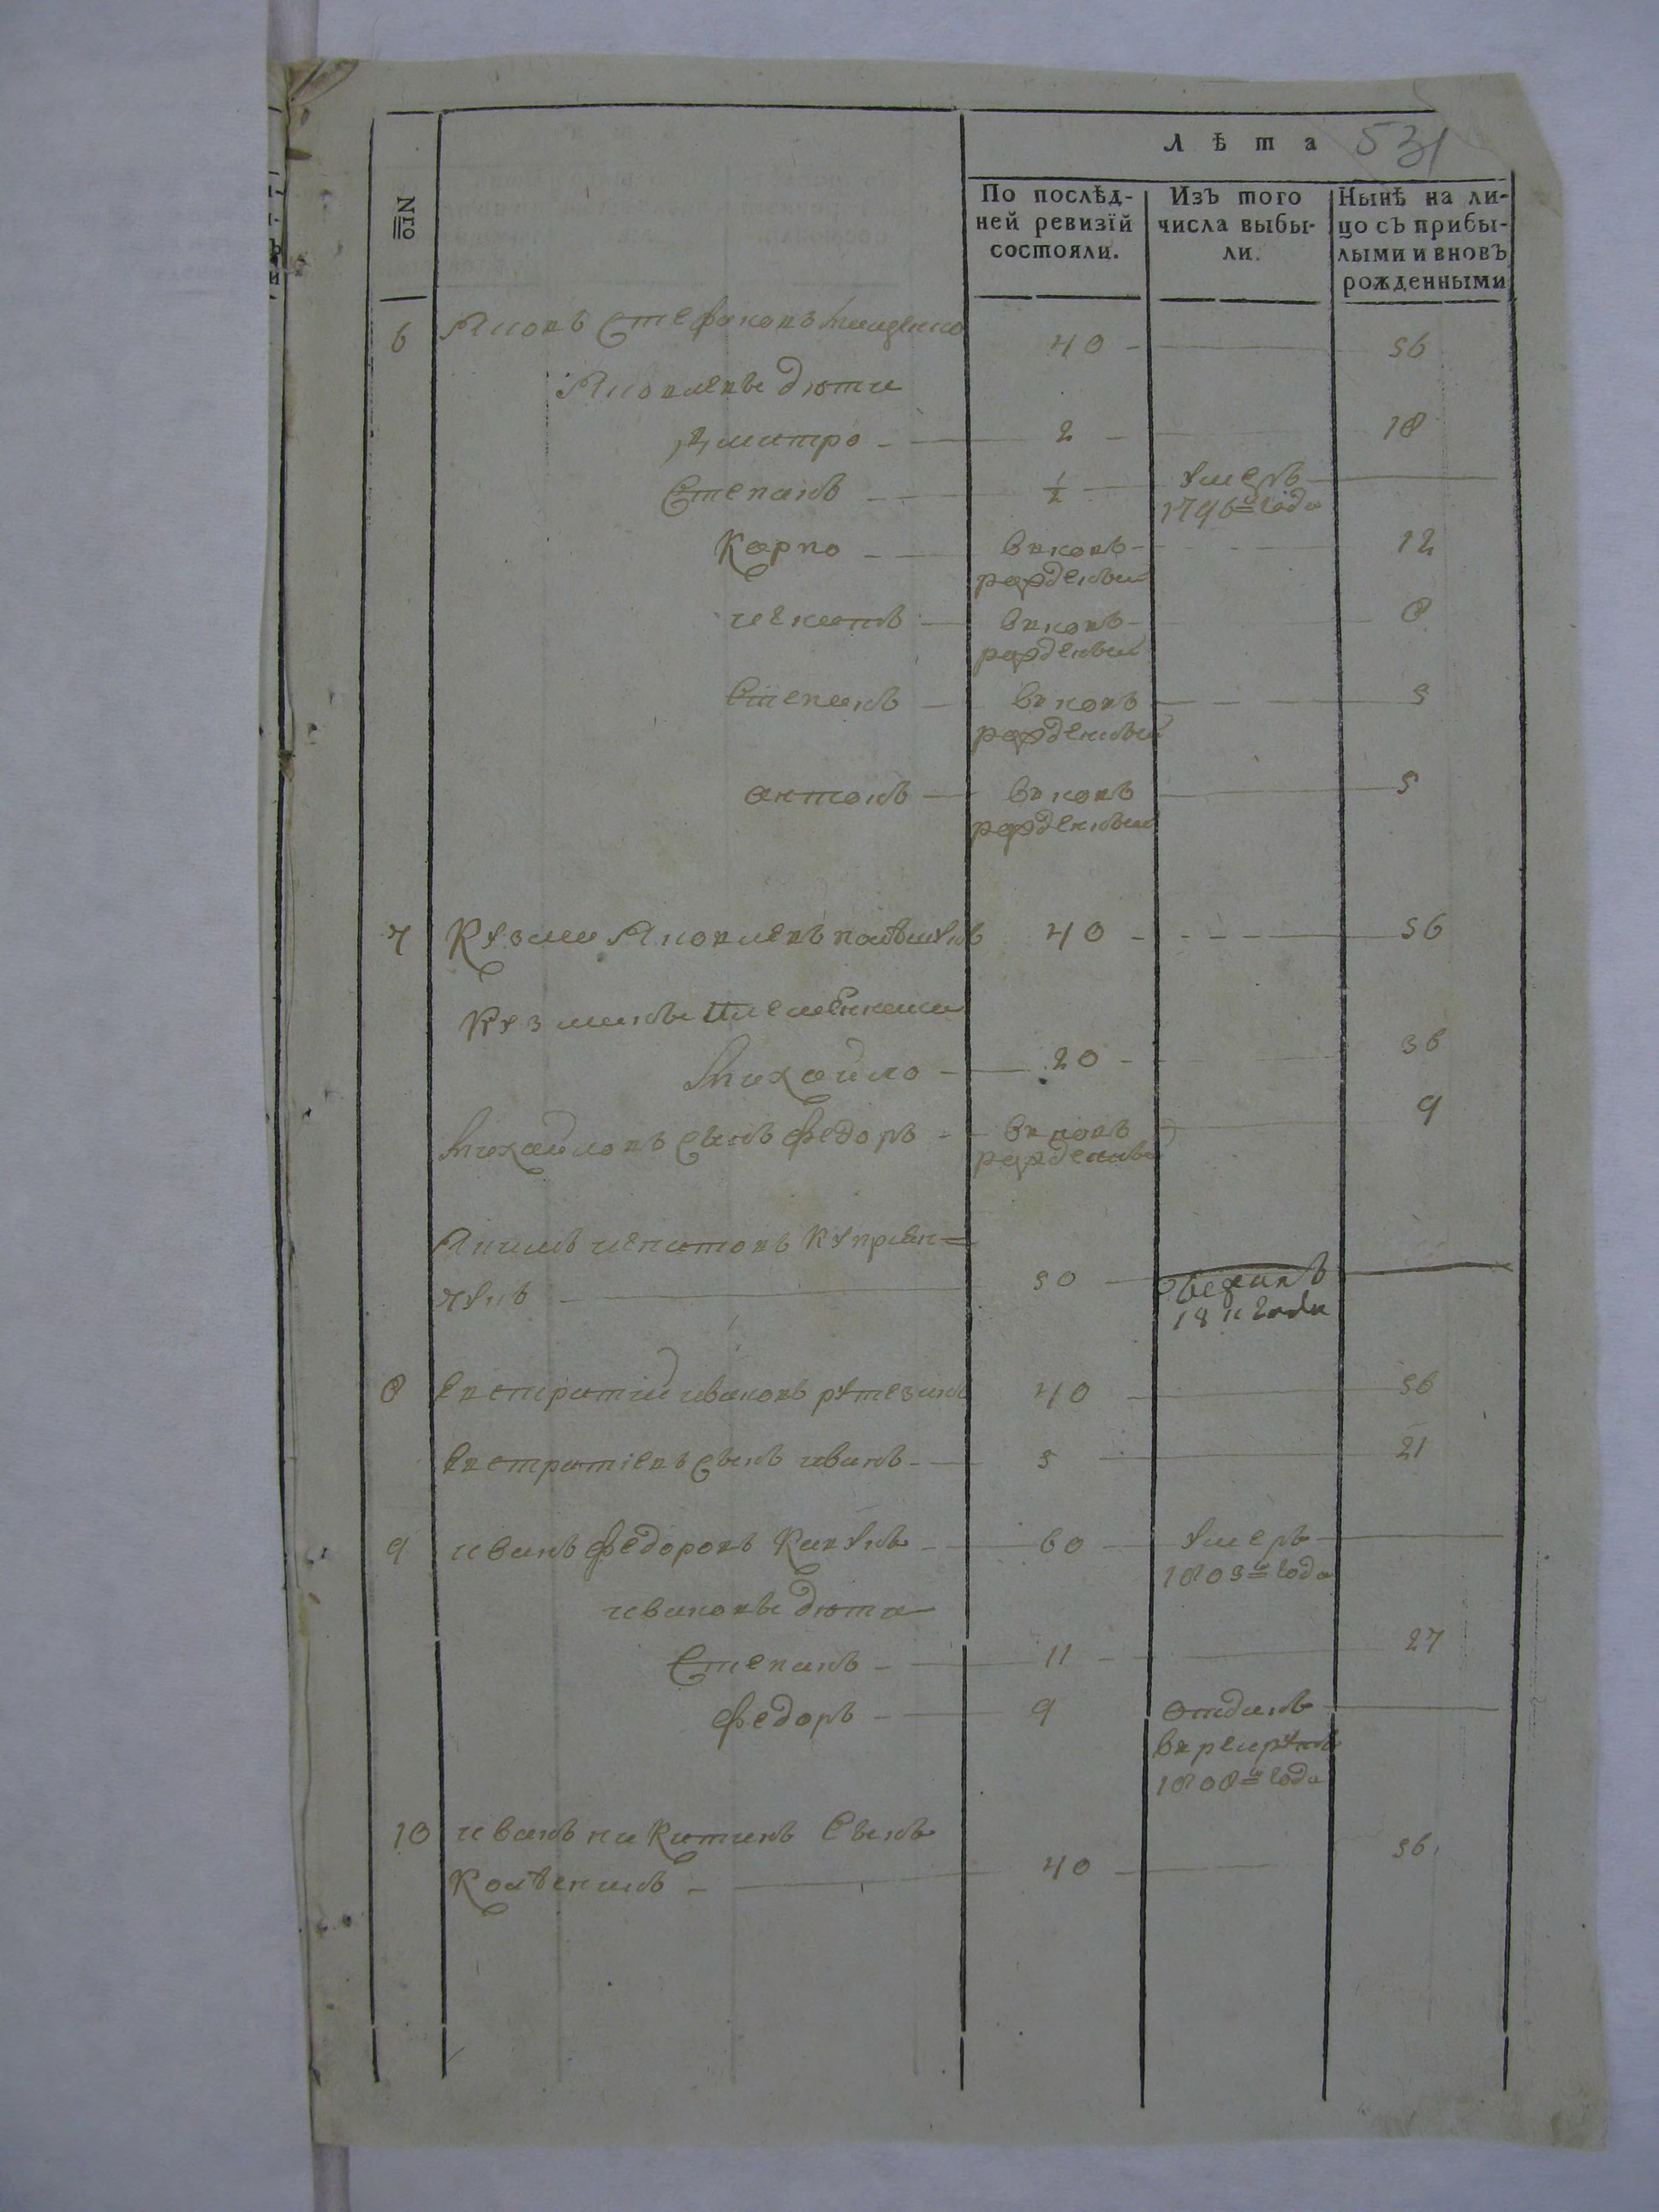 Лѣта 531
№
По послѣд-
ней ревизїй
состояли.
Изъ того
числа выбы-
ли.
Нынѣ на ли-
цо съ прибы-
лыми и вновь
рожденными
6 Яковъ Стефановъ 40 - 56
Яковлевы дѣти
Дмитро - 2 - 18
Степанъ - ½ - умеръ
1796го года
Карпо - вновь- 12
рожденный
вновь- 8
рожденный
Степанъ - вновь 5
рожденный
антонъ - вновь 5
рожденный
7 Кузма Яковлевъ 40 - 56
Кузмины племенники
Михайло - 20 - 36
Михайловъ сынъ федоръ - вновь 9
рожденный
Якимъ игнатовъ Куприен=
чукъ - 50 -
1811 года
8 Евстратий ивановъ 40 - 56
Евстратіевъ сынъ иванъ - 5 21
9 иванъ федоровъ 60 - умеръ
1803го года
ивановы дѣти
Степанъ - 11 - 27
федоръ - 9 отданъ
в рекруты
1808го года
10 иванъ никитинъ Сынъ
40 - 56